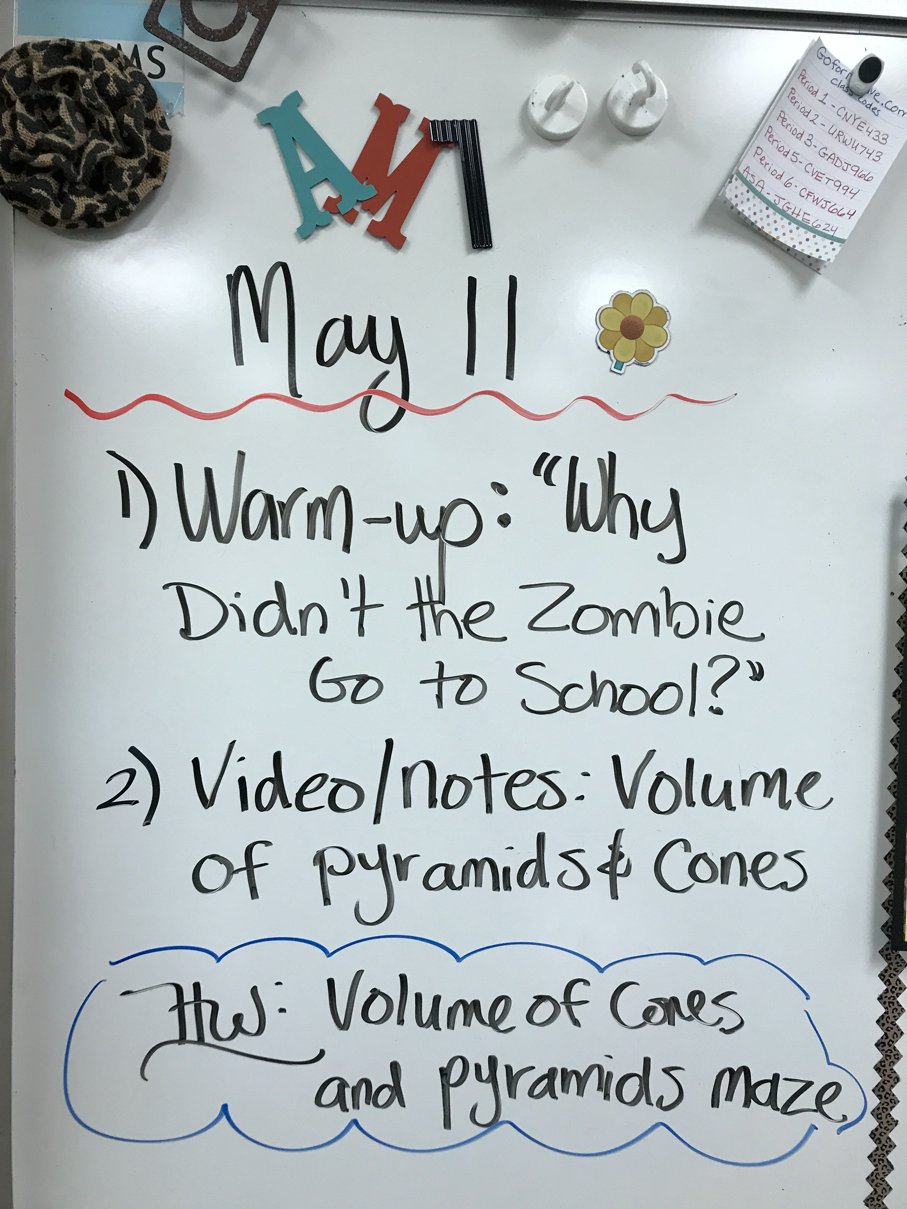 MS
AM7
Goformative.com
class codes
Period 1 - CNYE433
Period 2 - URWU743
Period 3 - GADJ966
Period 5 - CVET994
Period 6 - CFWJ664
ASA - JGHE624
May 11
1) Warm-up: "Why
Didn't the Zombie
Go to School?"
2) Video/notes: Volume
of pyramids & Cones
HW: Volume of Cones
and pyramids maze